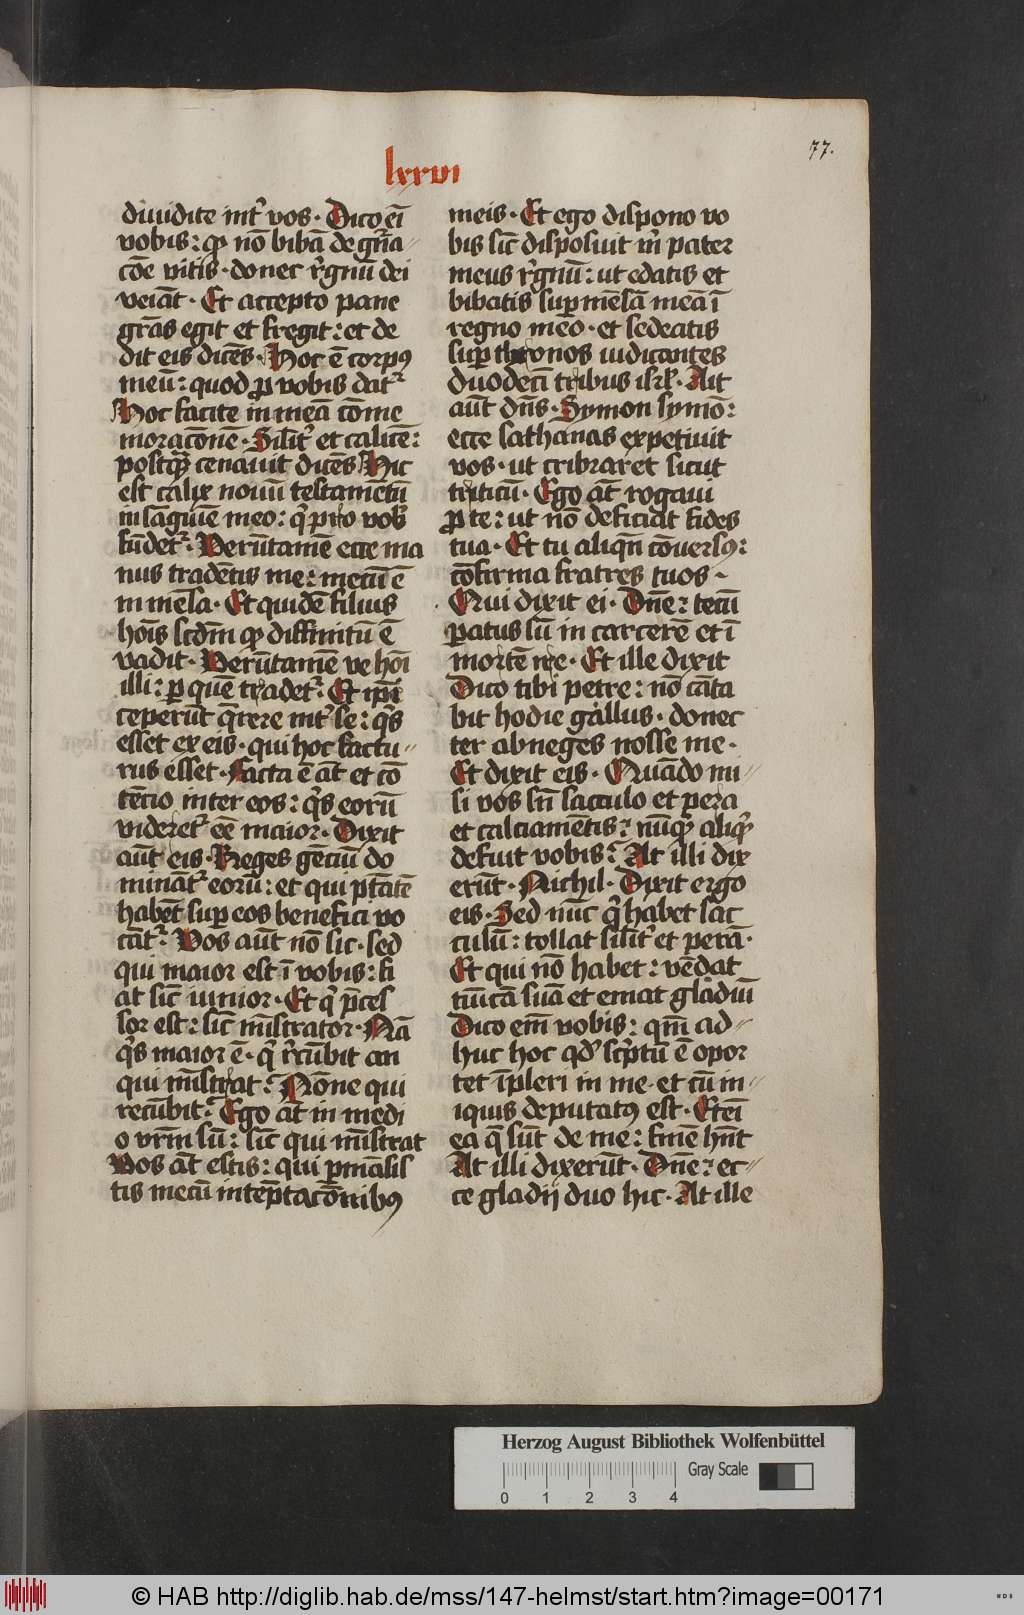 lxxvi
77.
diuidite int᷑ vos · Dico eī
vobis : qꝫ nō bibā de gn̄a
cōe vitis · donec r̉gnū dei
veiāt · Et accepto pane
gr̄as egit et fregit : et de
dit eis dicēs · Hoc ē corpꝰ
meū : quod ꝓ vobis dat᷑
Hoc facite in meā cōme
moracōnē · Silit᷑ et calicē :
postqꝫ cenauit dicēs Hic
est calix nouū testamētū
in sāguīe meo : q̇ pro vob̓
fūdet᷑ · Verūtamē ecce ma
nus tradētis me : mecū ē
in mēsa · Et quidē filius
hoīs scdm̄ qꝫ diffinitū ē
vadit · Verūtamē ve hoī
illi : ꝑ quē tradet᷑ · Et ip̄i
ceperūt q̄rere int᷑ se : q̇s
esset ex eis · qui hoc factu
rus esset · Facta ē āt et cō
tēcio inter eos : q̇s eorū
videret᷑ eē maior · Dixit
aūt eis · Reges gēciū do
mināt᷑ eorū : et qui ptātē
habēt suꝑ eos benefici vo
cāt᷑ · Vos aūt nō sic · sed
qui maior est ī vobis : fi
at sic̄ iunior · Et q̇ p̄ces
sor est : sic̄ mīstrator · Nā
q̇s maior ē · q̇ r̉cūbit an
qui mīstrat : Nōne qui
recūbit : Ego āt in medi
o vr̄m sū : sic̄ qui mīstrat
Vos āt estis : qui ꝑmāsis
tis mecū in tēptacōnibꝰ
meis · Et ego dispono vo
bis sic̄ disposuit m̉ pater
meus r̉gnū : ut edatis et
bibatis suꝑ mēsā meā ī
regno meo · et sedeatis
suꝑ thronos iudicantes
duodecī tribus isrl̄ · Ait
aūt dn̄s · Symon symō :
ecce sathanas expetiuit
vos · ut cribraret sicut
triticū · Ego āt rogaui
ꝓ te : ut nō deficiat fides
tua · Et tu aliqn̄ cōuersꝰ :
cōfirma fratres tuos ·
Qui dixit ei · Dn̄e : tecū
paratus sū in carcerē et ī
mortē ire · Et ille dixit
Dico tibi petre : nō cāta
bit hodie gallus · donec
ter abneges nosse me ·
Et dixit eis · Quādo mi
si vos sn̄ sacculo et pera
et calciamētis : nūqꝫ aliqꝫ
defuit vobis : At illi dix
erūt · Nichil · Dixit ergo
eis · Sed nūc q̇ habet sac
culū : tollat silit᷑ et perā ·
Et qui nō habet : vēdat
tūicā suā et emat gladiū
Dico em̄ vobis : qm̄ ad
huc hoc qd̓ sc̉ptū ē opor
tet īpleri in me · et cū in
iquis deputatꝰ est · Etēi
ea q̄ sūt de me : finē hn̄t
At illi dixerūt · Dn̄e : ec
ce gladij duo hic · At ille
Herzog August Bibliothek Wolfenbüttel
Gray Scale
0 1 2 3 4
© HAB http://diglib.hab.de/mss/147-helmst/start.htm?image=00171
WDB